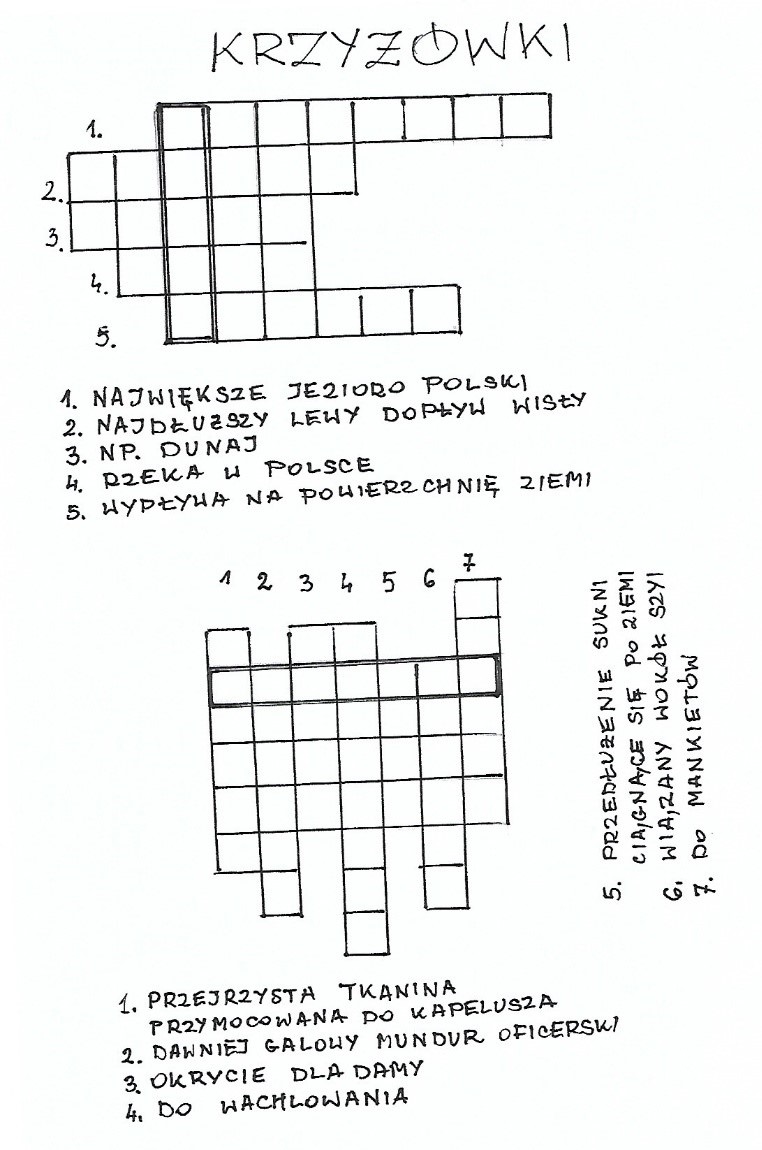 KRZYZÓWKI
1.
2.
3.
4.
5.
1. NAJWIĘKSZE JEZIORO POLSKI
2. NAJDŁUŻSZY LEWY DOPŁYW WISŁY
3. NP. DUNAJ
4. RZEKA W POLSCE
5. WYPŁYWA NA POWIERZCHNIĘ ZIEMI
1 2 3 4 5 6 7
5. PRZEDŁUŻENIE SUKNI
CIĄGNĄCE SIĘ PO ZIEMI
6. WIĄZANY WOKÓŁ SZYI
7. DO MANKIETÓW
1. PRZEJRZYSTA TKANINA
PRZYMOCOWANA DO KAPELUSZA
2. DAWNIEJ GALOWY MUNDUR OFICERSKI
3. OKRYCIE DLA DAMY
4. DO WACHLOWANIA